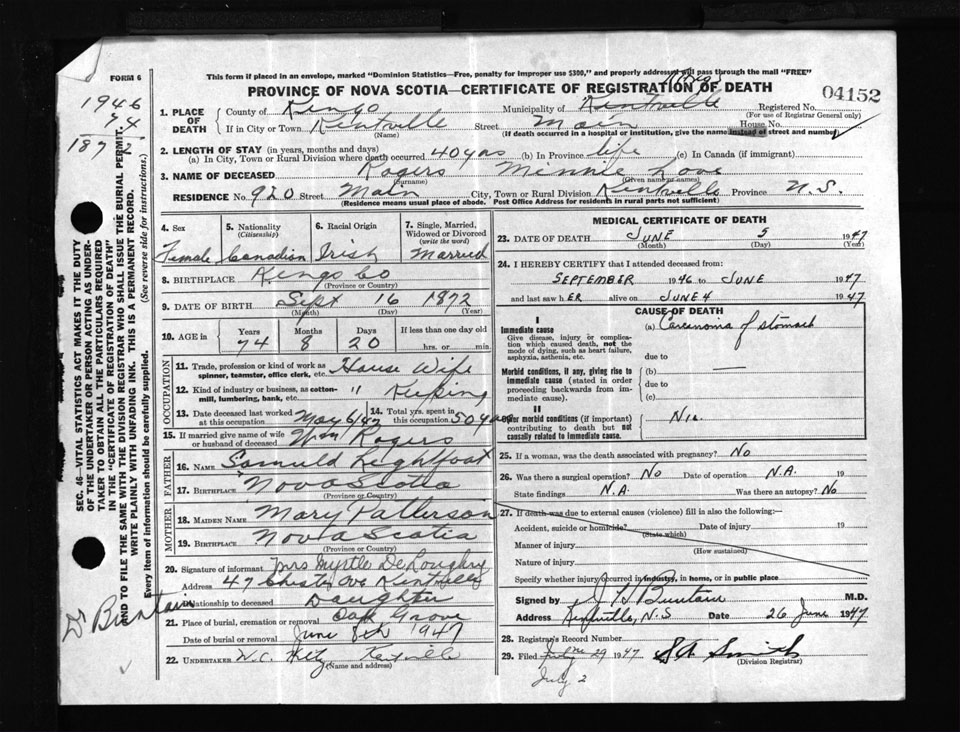 FORM 6
This form if placed in an envelope, marked "Dominion Statistics—Free, penalty for improper use $300," and properly addressed will pass through the mail "FREE"
PROVINCE OF NOVA SCOTIA—CERTIFICATE OF REGISTRATION OF DEATH
04152
1946
74
1872
SEC. 46—VITAL STATISTICS ACT MAKES IT THE DUTY
OF THE UNDERTAKER OR PERSON ACTING AS UNDER-
TAKER TO OBTAIN ALL THE PARTICULARS REQUIRED
IN THE "CERTIFICATE OF REGISTRATION OF DEATH"
AND TO FILE THE SAME WITH THE DIVISION REGISTRAR WHO SHALL ISSUE THE BURIAL PERMIT.
WRITE PLAINLY WITH UNFADING INK. THIS IS A PERMANENT RECORD.
Every item of information should be carefully supplied. (See reverse side for instructions.)
Dr Buntain
1. PLACE OF DEATH County of Kings Municipality of Kentville Registered No.
(For use of Registrar General only)
If in City or Town Kentville Street Main House No.
(Name) (If death occurred in a hospital or institution, give the name instead of street and number)
2. LENGTH OF STAY (in years, months and days)
(a) In City, Town or Rural Division where death occurred 40 yrs (b) In Province life (c) In Canada (if immigrant)
3. NAME OF DECEASED Rogers Minnie
(Surname) (Given name or names)
RESIDENCE No. 920 Street Main City, Town or Rural Division Kentville Province N.S.
(Residence means usual place of abode. Post Office Address for residents in rural parts not sufficient)
4. Sex Female
5. Nationality (Citizenship) Canadian
6. Racial Origin Irish
7. Single, Married, Widowed or Divorced (write the word) Married
8. BIRTHPLACE Kings Co
(Province or Country)
9. DATE OF BIRTH Sept 16 1872
(Month) (Day) (Year)
10. AGE in Years 74 Months 8 Days 20 If less than one day
hrs. or min.
OCCUPATION
11. Trade, profession or kind of work as spinner, teamster, office clerk, etc. House Wife
12. Kind of industry or business, as cotton-mill, lumbering, bank, etc. " Keeping
13. Date deceased last worked at this occupation May 6/47 14. Total yrs. spent in this occupation 50 yrs
15. If married give name of wife or husband of deceased Wm Rogers
FATHER
16. NAME Lightfoot
17. BIRTHPLACE Nova Scotia
(Province or Country)
MOTHER
18. MAIDEN NAME Mary Patterson
19. BIRTHPLACE Nova Scotia
(Province or Country)
20. Signature of informant Mrs Myrtle
Address 47 Chester Ave Kentville
Relationship to deceased Daughter
21. Place of burial, cremation or removal Oak Grove
Date of burial or removal June 8th 1947
22. UNDERTAKER W.C. Kentville
(Name and address)
MEDICAL CERTIFICATE OF DEATH
23. DATE OF DEATH JUNE 5 1947
(Month) (Day) (Year)
24. I HEREBY CERTIFY that I attended deceased from:
SEPTEMBER 1946 to JUNE 1947
and last saw hER alive on JUNE 4 1947
CAUSE OF DEATH
I
Immediate cause
Give disease, injury or complication which caused death, not the mode of dying, such as heart failure, asphyxia, asthenia, etc.
(a) Carcanoma of stomach
due to
Morbid conditions, if any, giving rise to immediate cause (stated in order proceeding backwards from immediate cause).
(b) —
due to
(c)
II
Other morbid conditions (if important) contributing to death but not causally related to immediate cause.
25. If a woman, was the death associated with pregnancy? No
26. Was there a surgical operation? No Date of operation N.A. 19
State findings N.A. Was there an autopsy? No
27. If death was due to external causes (violence) fill in also the following:—
Accident, suicide or homicide? Date of injury 19
(State which)
Manner of injury
(How sustained)
Nature of injury
Specify whether injury occurred in industry, in home, or in public place
Signed by J H Buntain M.D.
Address Kentville, N.S Date 26 June 1947
28. Registrar's Record Number
29. Filed June 29 1947 Smith
(Division Registrar)
July 2